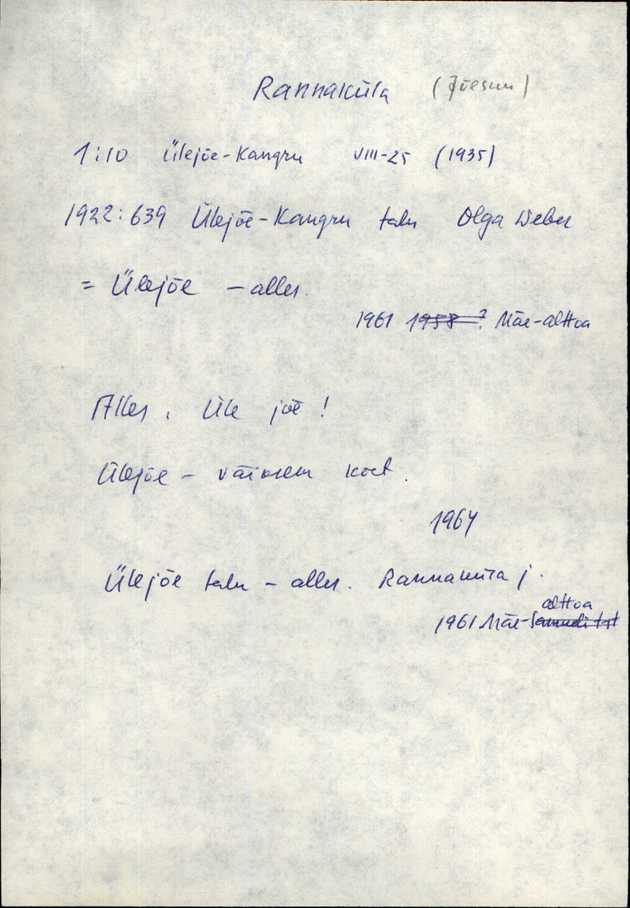 Rannaküla (Jõesuu)
1:10 Ülejõe-Kangru VIII-25 (1935)
1922:639 Ülejõe-Kangru talu Olga Weber
= Ülejõe - alles.
1961 1958 ? Mäe-alttoa
Alles, Üle jõe!
Ülejõe - väiksem koht.
1964
Ülejõe talu - alles. Rannaküla j.
alttoa
1961 Mäe-